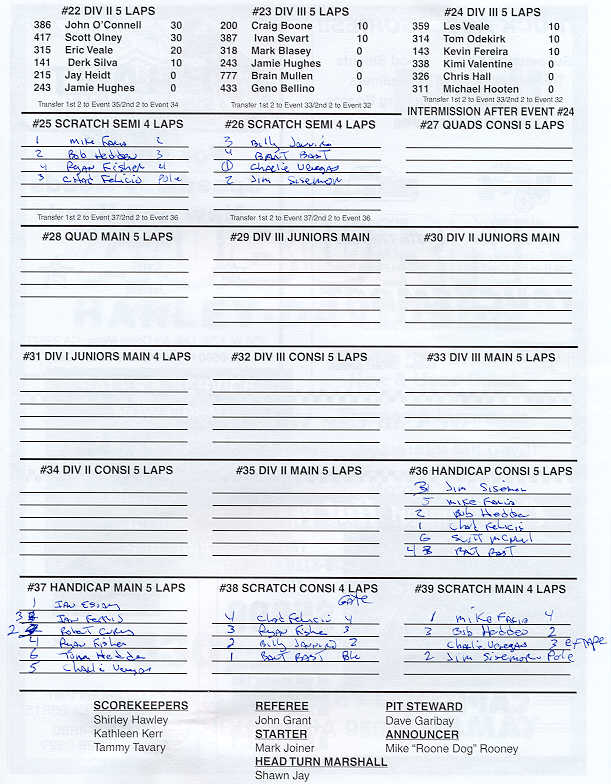 #22 DIV II 5 LAPS
386 John O'Connell 30
417 Scott Olney 30
315 Eric Veale 20
141 Derk Silva 10
215 Jay Heidt 0
243 Jamie Hughes 0
Transfer 1st 2 to Event 35/2nd 2 to Event 34
#23 DIV III 5 LAPS
200 Craig Boone 10
387 Ivan Sevart 10
318 Mark Blasey 0
243 Jamie Hughes 0
777 Brain Mullen 0
433 Geno Bellino 0
Transfer 1st 2 to Event 33/2nd 2 to Event 32
#24 DIV III 5 LAPS
359 Les Veale 10
314 Tom Odekirk 10
143 Kevin Fereira 10
338 Kimi Valentine 0
326 Chris Hall 0
311 Michael Hooten 0
Transfer 1st 2 to Event 33/2nd 2 to Event 32
INTERMISSION AFTER EVENT #24
#25 SCRATCH SEMI 4 LAPS
1 Mike Faria 2
2 Bob Hedden 3
4 Ryan Fisher 4
3 Chad Felicio Pole
Transfer 1st 2 to Event 37/2nd 2 to Event 36
#26 SCRATCH SEMI 4 LAPS
3 Billy
4 BART BAST
1 Charlie Venegas
2 Jim Sisemore
Transfer 1st 2 to Event 37/2nd 2 to Event 36
#27 QUADS CONSI 5 LAPS
#28 QUAD MAIN 5 LAPS
#29 DIV III JUNIORS MAIN
#30 DIV II JUNIORS MAIN
#31 DIV I JUNIORS MAIN 4 LAPS
#32 DIV III CONSI 5 LAPS
#33 DIV III MAIN 5 LAPS
#34 DIV II CONSI 5 LAPS
#35 DIV II MAIN 5 LAPS
#36 HANDICAP CONSI 5 LAPS
3 Jim Sisemore
5 Mike Faria
2 Bob Hedden
1 Chad Felicio
6 Scott
4 BART BAST
#37 HANDICAP MAIN 5 LAPS
1 IAN
3 IAN Ferris
2 Robert Curry
4 Ryan Fisher
6 Hedden
5 Charlie Venegas
#38 SCRATCH CONSI 4 LAPS
GATE
4 Chad Felicio 4
3 Ryan Fisher 3
2 Billy 2
1 BART BAST Pole
#39 SCRATCH MAIN 4 LAPS
1 Mike Faria 4
3 Bob Hedden 2
Charlie Venegas 3 ex TAPE
2 Jim Sisemore Pole
SCOREKEEPERS
Shirley Hawley
Kathleen Kerr
Tammy Tavary
REFEREE
John Grant
STARTER
Mark Joiner
HEAD TURN MARSHALL
Shawn Jay
PIT STEWARD
Dave Garibay
ANNOUNCER
Mike "Roone Dog" Rooney